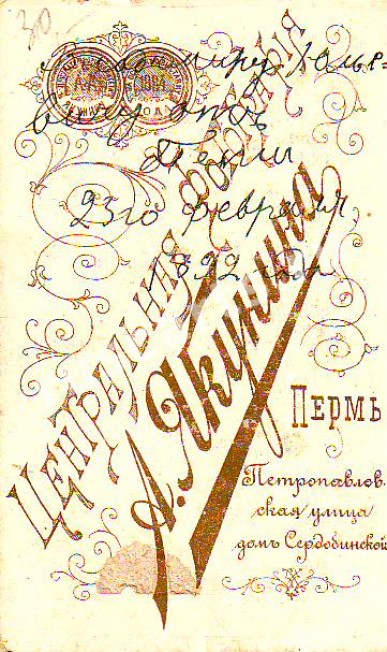 30
Владимиру Юлье-
вичу отъ
25го февраля
1892 года
Центральная фотографія
А. Якунина
Пермь
Петропавлов-
ская улица
домъ Сердобинской